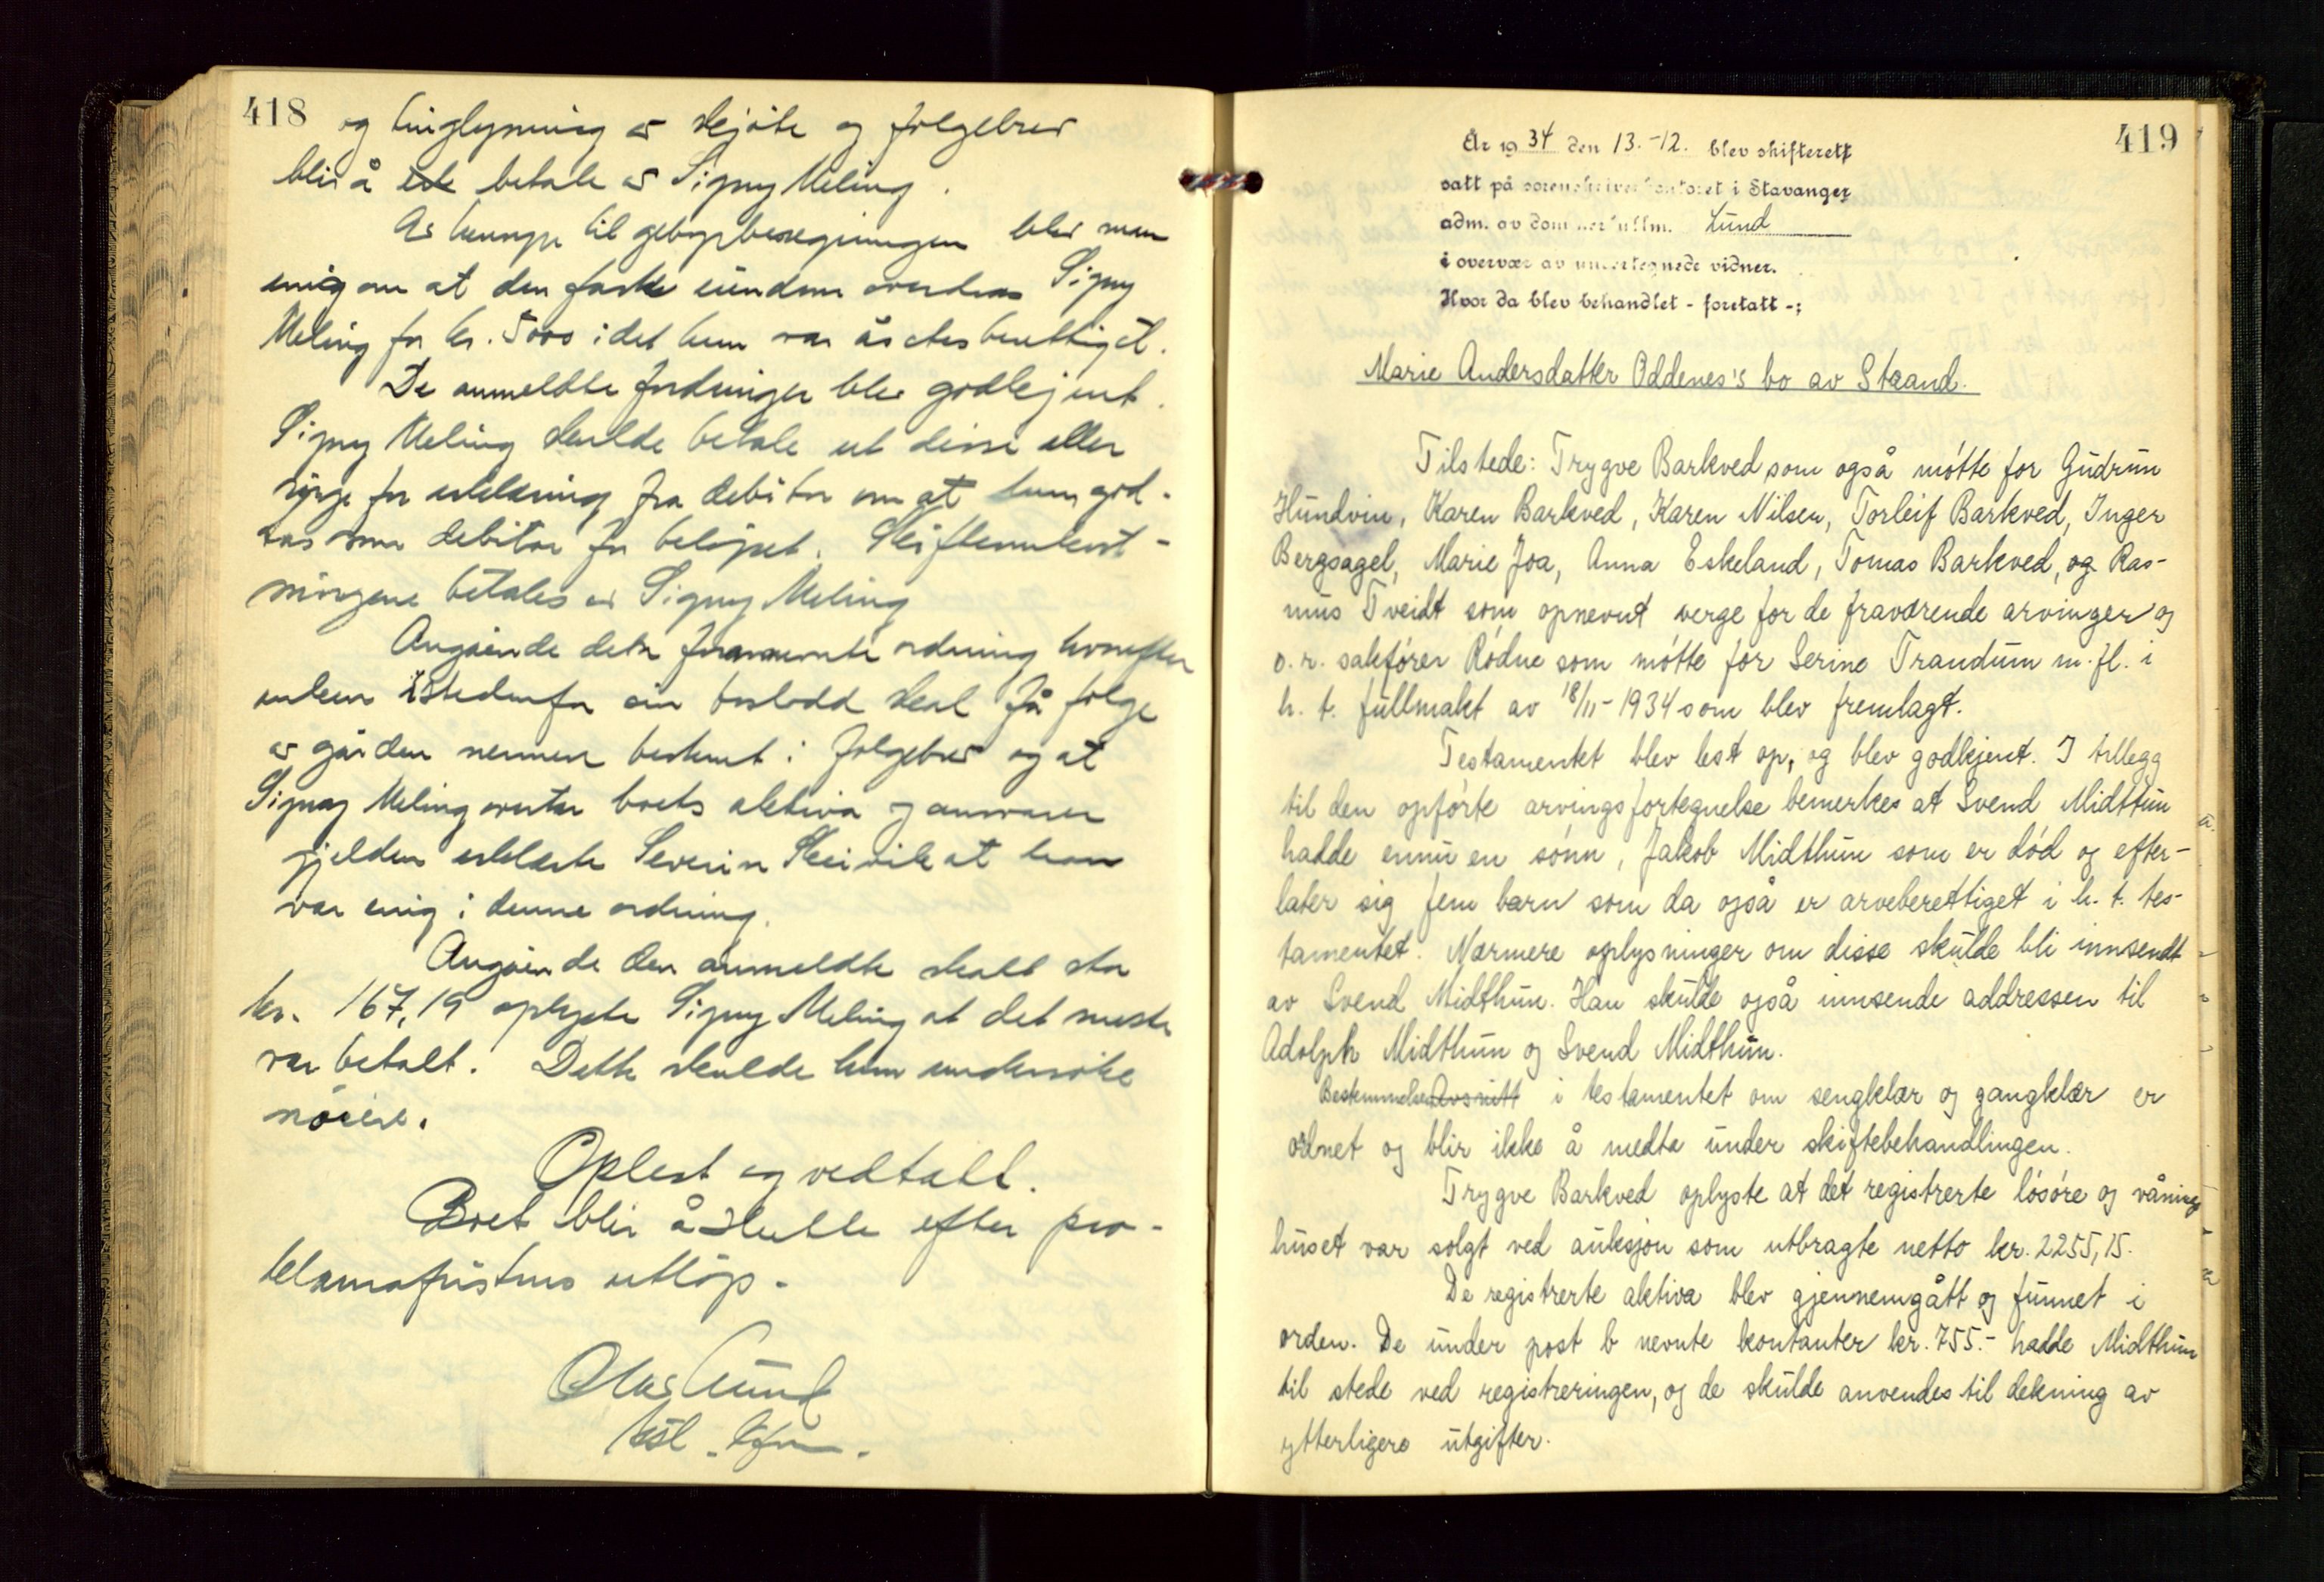 418
og tinglysning av skjöte og folgebrev
blir å betale av Signy Meling.
Av hensyn til gebyrberegningen blev man
enig om at den faste eiendom overdras Signy
Meling for kr. 5000 idet hun var åsetesberettiget.
De anmeldte fordringer blev godkjent.
Signy Meling skulde betale ut disse eller
sörge for erklæring fra debitor om at hun god-
tas som debitor for belöpet. Skifteomkost-
ningene betales av Signy Meling
Angående den forannevnte ordning hvorefter
enken istedenfor sin boslodd skal få folge
av gården nermere bestemt i folgebrev og at
Signy Meling overtar boets aktiva og ansvaret
gjelden erklærte Severin Skeivik at han
var enig i denne ordning.
Angående den anmeldte skatt stor
kr. 167,19 oplyste Signy Meling at det meste
var betalt. Dette skulde hun undersöke
nöiere.
Oplest og vedtatt.
Boet blir å slutte efter pro-
klamafristens utlöp.
Olav Lund
419
År 1934 den 13.-12. blev skifterett
satt på sorenskriverkontoret i Stavanger
adm. av dommerfullm. Lund
i overvær av undertegnede vidner.
Hvor da blev behandlet - foretatt -;
Marie Andersdatter Oddenes's bo av Strand.
Tilstede: Trygve Barkved som også mötte for Gudrun
Hundvin, Karen Barkved, Karen Nilsen, Torleif Barkved, Inger
Bergsagel, Marie Joa, Anna Eskeland, Tomas Barkved, og Ras-
mus Tveidt som opnevnt verge for de fraværende arvinger og
o. r. sakförer Rödne som mötte for Serine Trandum m. fl. i
h. t. fullmakt av 18/11-1934 som blev fremlagt.
Testamentet blev lest op, og blev godkjent. I tillegg
til den opförte arvingsfortegnelse bemerkes at Svend Midttun
hadde ennu en sönn, Jakob Midthun som er död og efter-
later sig fem barn som da også er arveberettiget i h. t. tes-
tamentet. Nærmere oplysninger om disse skulde bli innsendt
av Svend Midthun. Han skulde også innsende addressen til
Adolph Midthun og Svend Midthun.
Bestemmelse Avsnitt i testamentet om sengklær og gangklær er
ordnet og blir ikke å medta under skiftebehandlingen.
Trygve Barkved oplyste at det registrerte lösöre og vånings
huset var solgt ved auksjon som utbragte netto kr. 2255,15.
De registrerte aktiva blev gjennemgått og funnet i
orden. De under post b nevnte kontanter kr. 755.- hadde Midthun
til stede ved registreringen, og de skulde anvendes til dekning av
ytterligere utgifter.